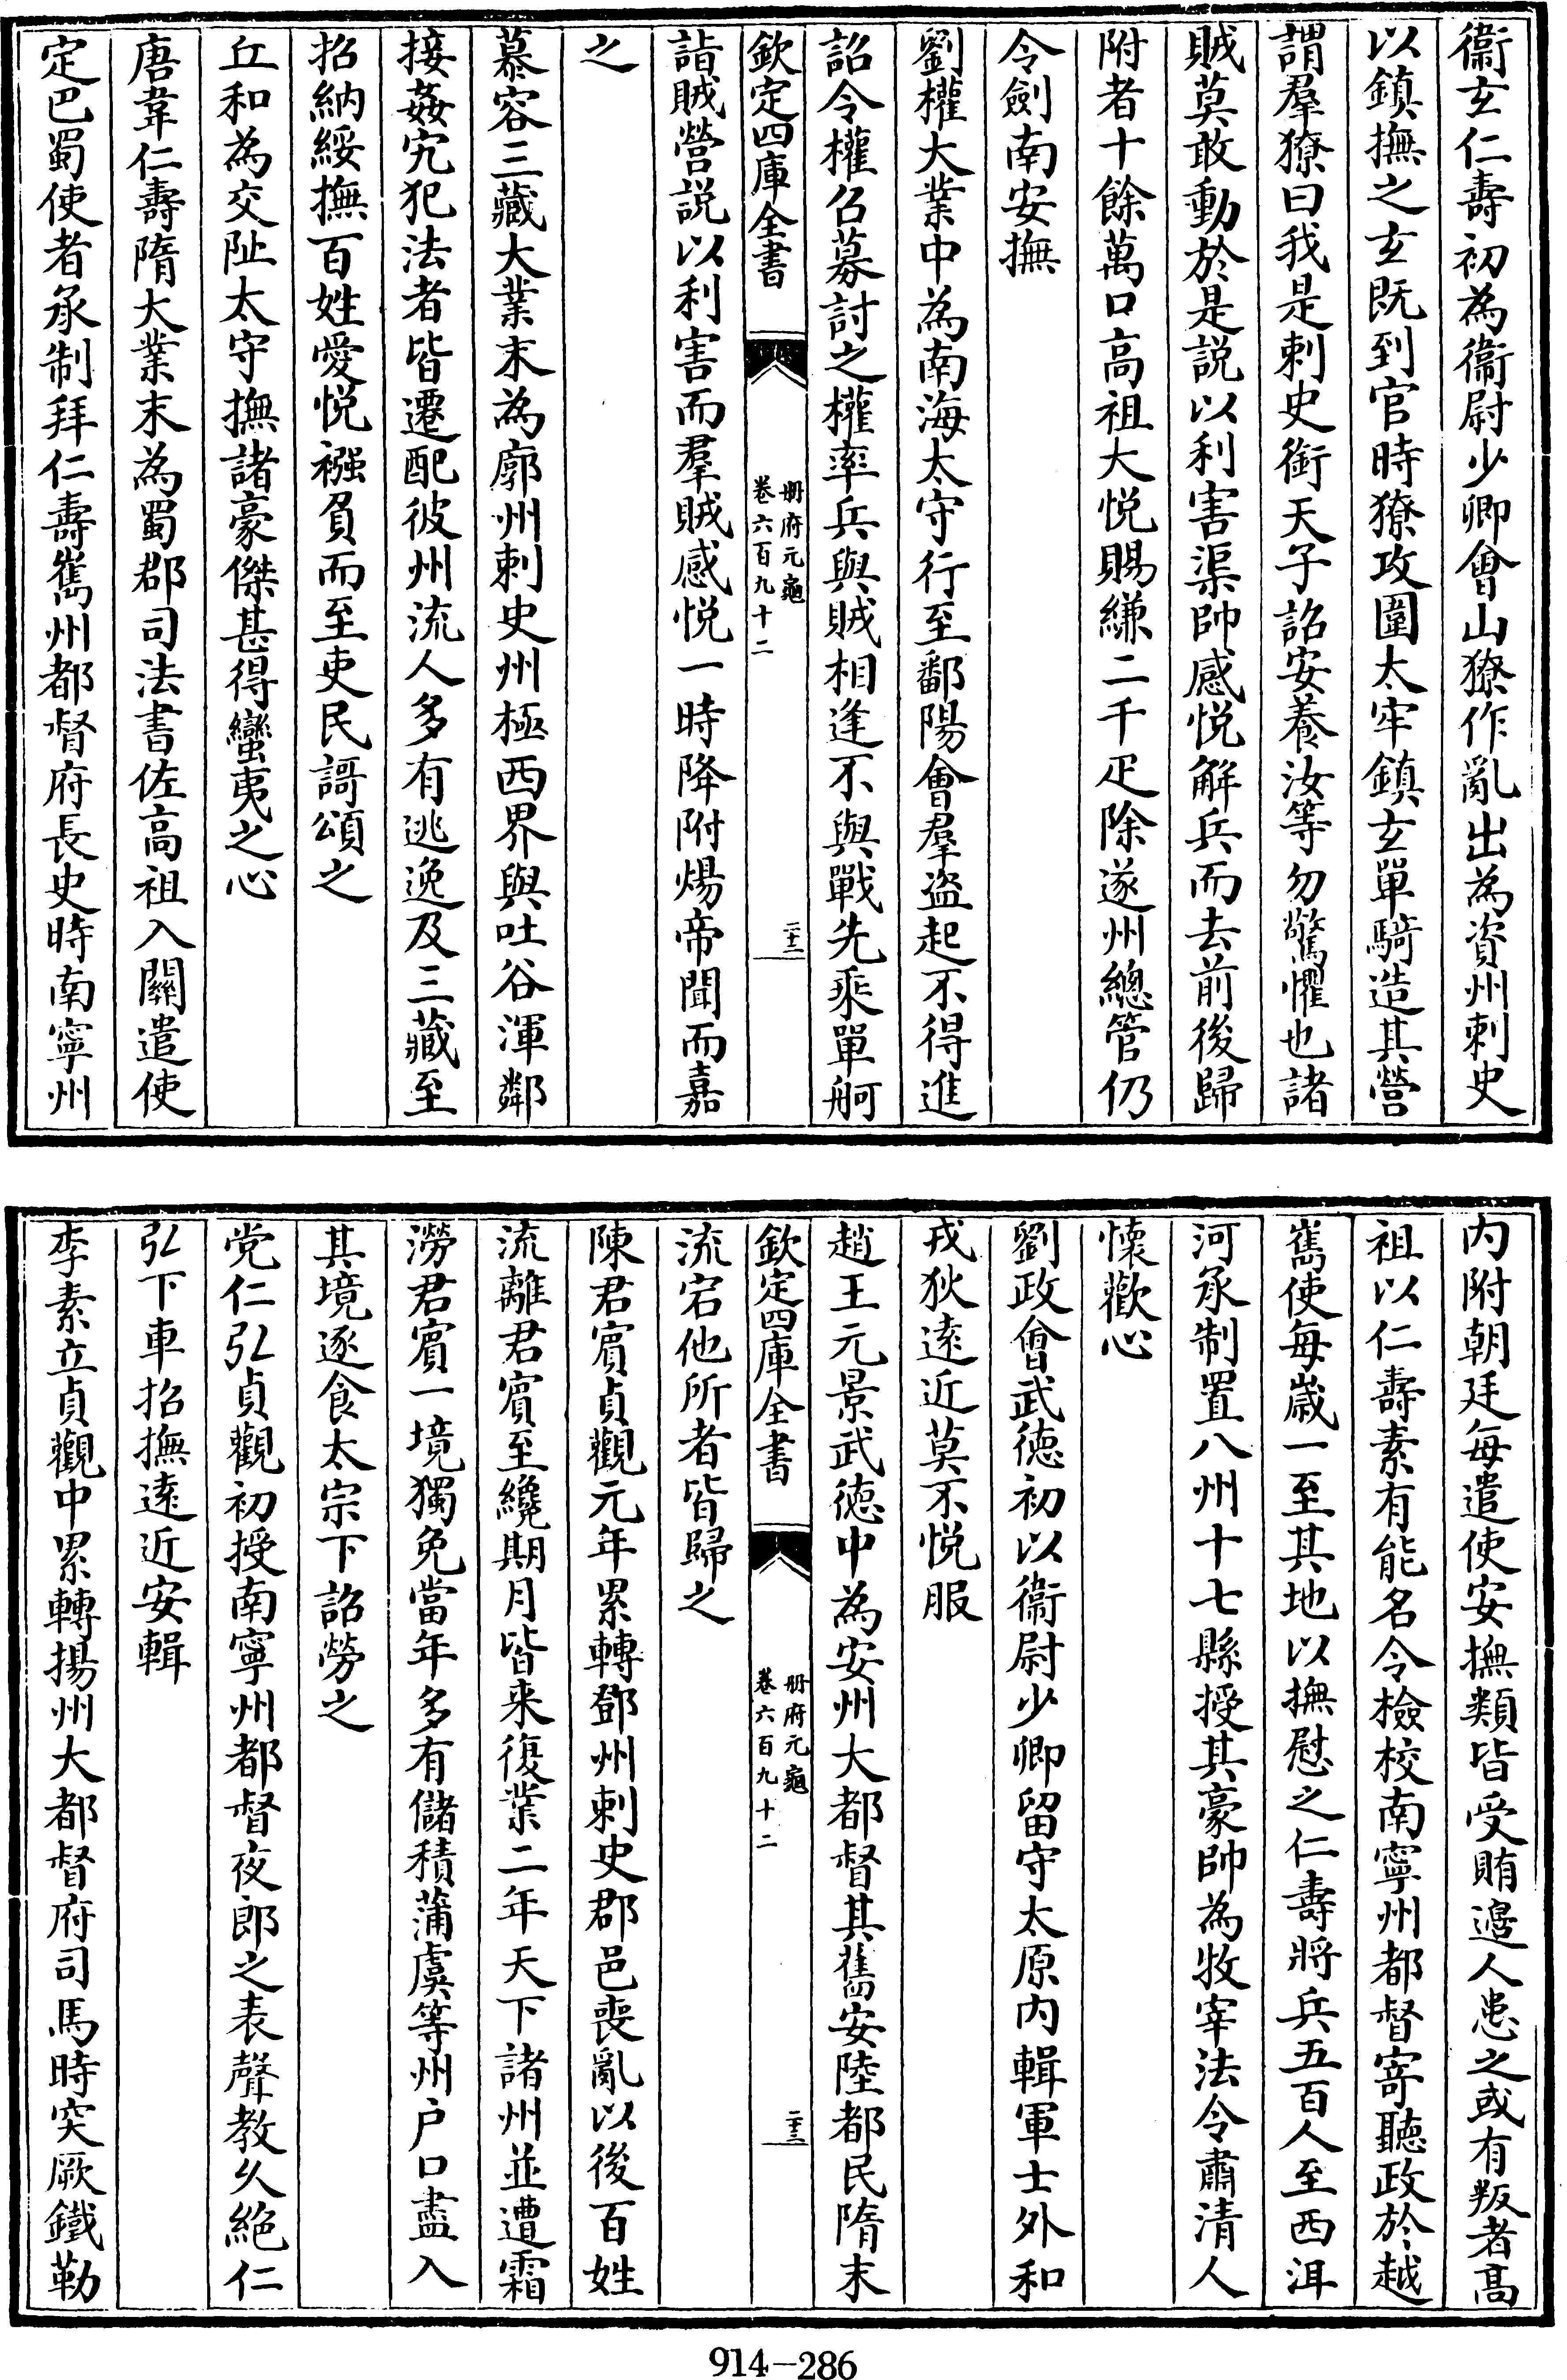 衞玄仁壽初為衞尉少卿會山獠作亂出為資州刺史
以鎮撫之玄既到官時獠攻圍太牢鎮玄單騎造其營
謂羣獠曰我是刺史銜天子詔安養汝等勿驚懼也諸
賊莫敢動於是説以利害渠帥感悦解兵而去前後歸
附者十餘萬口高祖大悦賜縑二千疋除遂州總管仍
令劍南安撫
劉權大業中為南海太守行至鄱陽會羣盗起不得進
詔令權召募討之權率兵與賊相逢不與戰先乘單舸
欽定四庫全書
册府元龜
卷六百九十二
二十二
詣賊營説以利害而羣賊感悦一時降附煬帝聞而嘉
之
慕容三藏大業末為廓州刺史州極西界與吐谷渾鄰
接姦宄犯法者皆遷配彼州流人多有逃逸及三藏至
招納綏撫百姓愛悦襁負而至吏民謌頌之
丘和為交阯太守撫諸豪傑甚得蠻夷之心
唐韋仁壽隋大業末為蜀郡司法書佐高祖入關遣使
定巴蜀使者承制拜仁壽嶲州都督府長史時南寧州
内附朝廷每遣使安撫類皆受賄邊人患之或有叛者高
祖以仁壽素有能名令檢校南寧州都督寄聽政於越
嶲使每嵗一至其地以撫慰之仁壽將兵五百人至西洱
河承制置八州十七縣授其豪帥為牧宰法令肅清人
懷歡心
劉政會武徳初以衞尉少卿留守太原内輯軍士外和
戎狄逺近莫不悦服
趙王元景武徳中為安州大都督其舊安陸都民隋末
欽定四庫全書
册府元龜
卷六百九十二
二十三
流宕他所者皆歸之
陳君賓貞觀元年累轉鄧州刺史郡邑喪亂以後百姓
流離君賓至纔期月皆来復業二年天下諸州並遭霜
澇君賓一境獨免當年多有儲積蒲虞等州户口盡入
其境逐食太宗下詔勞之
党仁弘貞觀初授南寧州都督夜郎之表聲教乆絶仁
弘下車招撫逺近安輯
李素立貞觀中累轉揚州大都督府司馬時突厥鐵勒
914-286